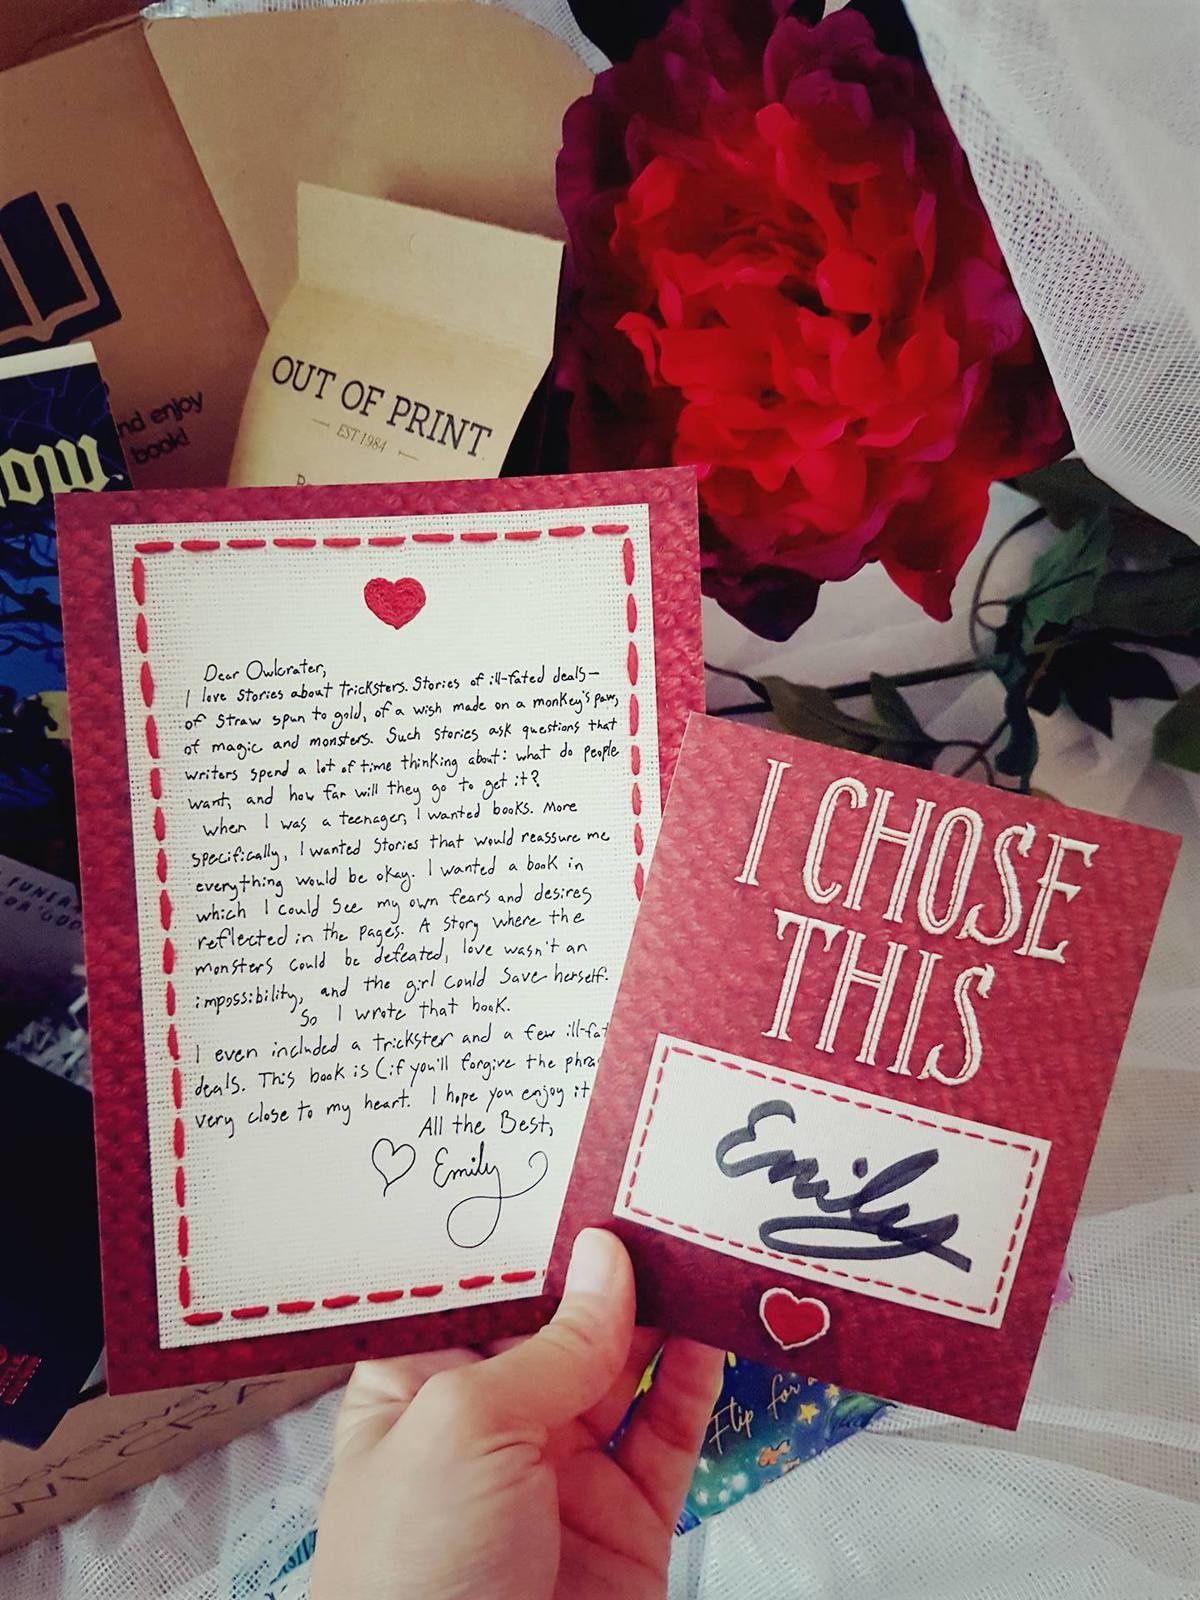 nd enjoy
book!
ow
OUT OF PRINT
EST 1984
Dear Owlcrater,
I love stories about tricksters. Stories of ill-fated deals—
of straw spun to gold, of a wish made on a monkey's paw,
of magic and monsters. Such stories ask questions that
writers spend a lot of time thinking about: what do people
want, and how far will they go to get it?
When I was a teenager, I wanted books. More
specifically, I wanted stories that would reassure me
everything would be okay. I wanted a book in
which I could see my own fears and desires
reflected in the pages. A story where the
monsters could be defeated, love wasn't an
impossibility, and the girl could save herself.
So I wrote that book.
I even included a trickster and a few ill-fat
deals. This book is (if you'll forgive the phra
very close to my heart. I hope you enjoy it
All the Best,
Emily
I CHOSE
THIS
Emily
Flip for a